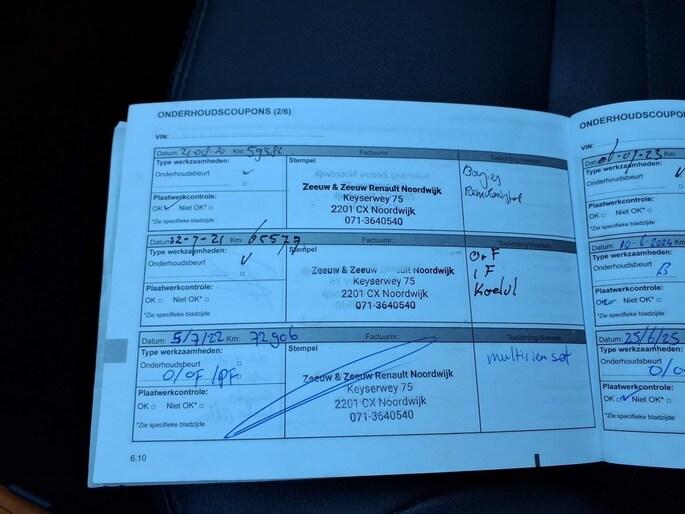 ONDERHOUDSCOUPONS (2/6)
VIN:
Datum: 21-08-20 Km: 59382 Factuurnr.: Toelichting/diversen
Type werkzaamheden:
Onderhoudsbeurt ✓
Stempel
Bougies
Remvloeistof
Plaatwerkcontrole:
OK ✓ Niet OK*
*Zie specifieke bladzijde
Zeeuw & Zeeuw Renault Noordwijk
Keyserwey 75
2201 CX Noordwijk
071-3640540
Datum: 22-7-21 Km: 65577 Factuurnr.: Toelichting/diversen
Type werkzaamheden:
Onderhoudsbeurt ✓
Stempel
IF
Koelvl
Plaatwerkcontrole:
OK Niet OK*
*Zie specifieke bladzijde
Zeeuw & Zeeuw Renault Noordwijk
Keyserwey 75
2201 CX Noordwijk
071-3640540
Datum: 5/7/22 Km: 72906 Factuurnr.: Toelichting/diversen
Type werkzaamheden:
Onderhoudsbeurt
O/OF/PF
Stempel
multirien set
Plaatwerkcontrole:
OK Niet OK*
*Zie specifieke bladzijde
Zeeuw & Zeeuw Renault Noordwijk
Keyserwey 75
2201 CX Noordwijk
071-3640540
6.10
ONDERHOUDSCOUPONS
VIN:
Datum:
Type werkzaamheden:
Onderhoudsbeurt
Plaatwerkcontrole:
OK Niet OK*
*Zie specifieke bladzijde
Datum: 10-6-2024
Type werkzaamheden:
Onderhoudsbeurt
B
Plaatwerkcontrole:
OK Niet OK*
*Zie specifieke bladzijde
Datum: 25/6/25
Type werkzaamheden:
Onderhoudsbeurt
Plaatwerkcontrole:
OK ✓ Niet OK*
*Zie specifieke bladzijde